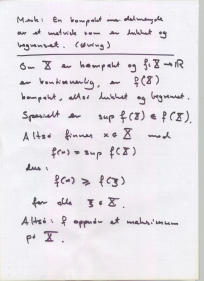 Merk: En kompakt delmengde
av et metrisk rom er lukket
og begrenset. (Øving)
Om X er kompakt og f: X → ℝ
er kontinuerlig, er f(X)
kompakt, altså lukket og begrenset.
Spesielt er sup f(X) ∈ f(X).
Altså finnes x ∈ X med
f(x) = sup f(X)
dvs:
f(x) ≥ f(ξ)
for alle ξ ∈ X.
Altså: f oppnår et maksimum
på X.